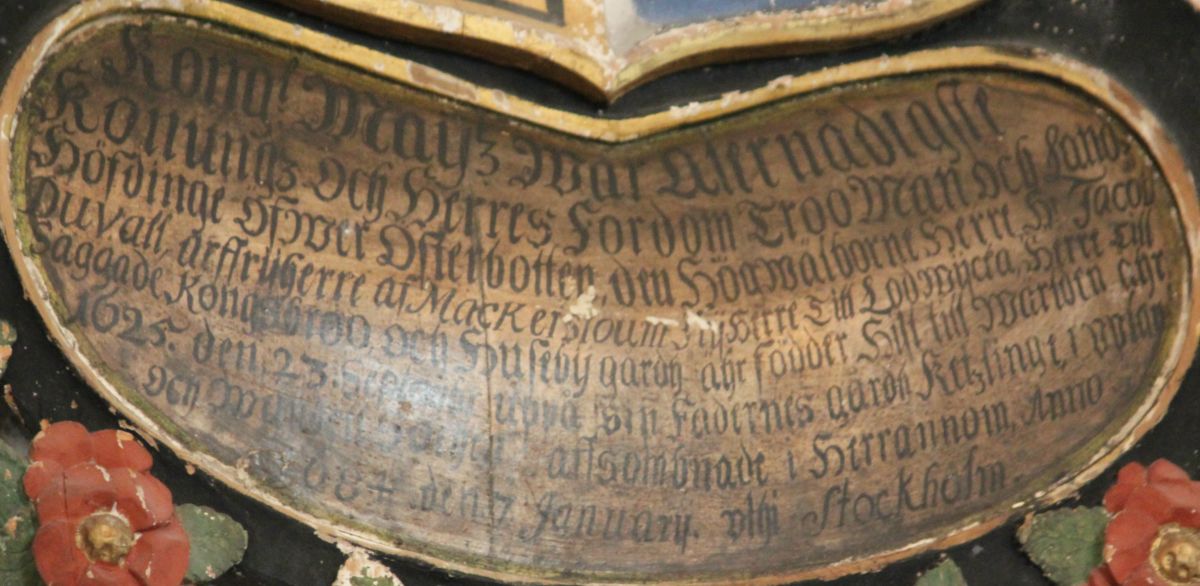 Kongl. Mayz War Allernådigste
Konungz och Herres Fordom Troo Man och Landz
Höfdinge öfwer Österbotten, den Högwälborne Herre Hr Jacob
Duvall, ärffrijherre af Mackersioum frijherre Till Lodwijcka, Herre till
Saggade, Kongzbroo och Huseby gardh, ahr födder Hist till Warlden ahr
1625. den 23. uppå sin Fadernes gardh Ketzlinge, i
och afsombnade i Herrannom, Anno
den 7 January. vthi Stockholm.